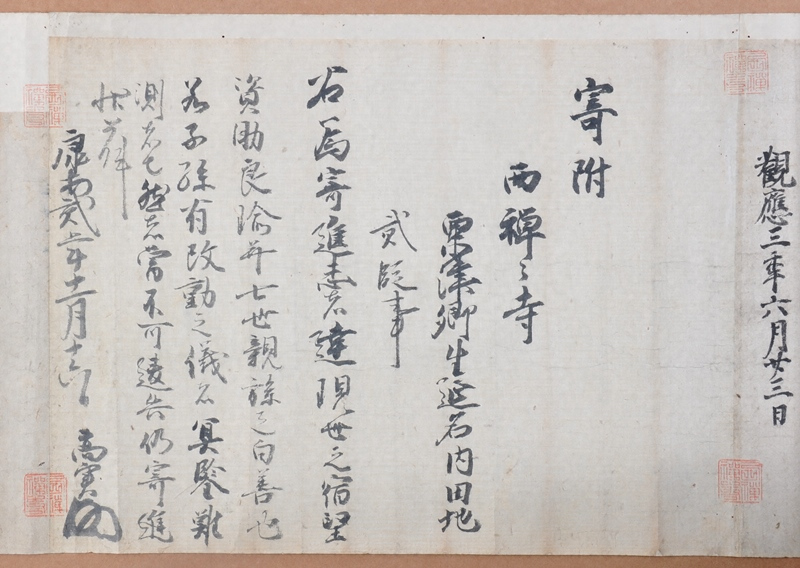 觀應三年六月廿三日
寄附
西禪々寺
粟津郷生延名内田地
貳段事
右為寄進志者達現世之宿望
資助良瑜并七世親孫之白善也
若子孫有改動之儀者冥鑒難
測者也然者當不可違失仍寄進
状如件
康安貳年十二月十六日
高實